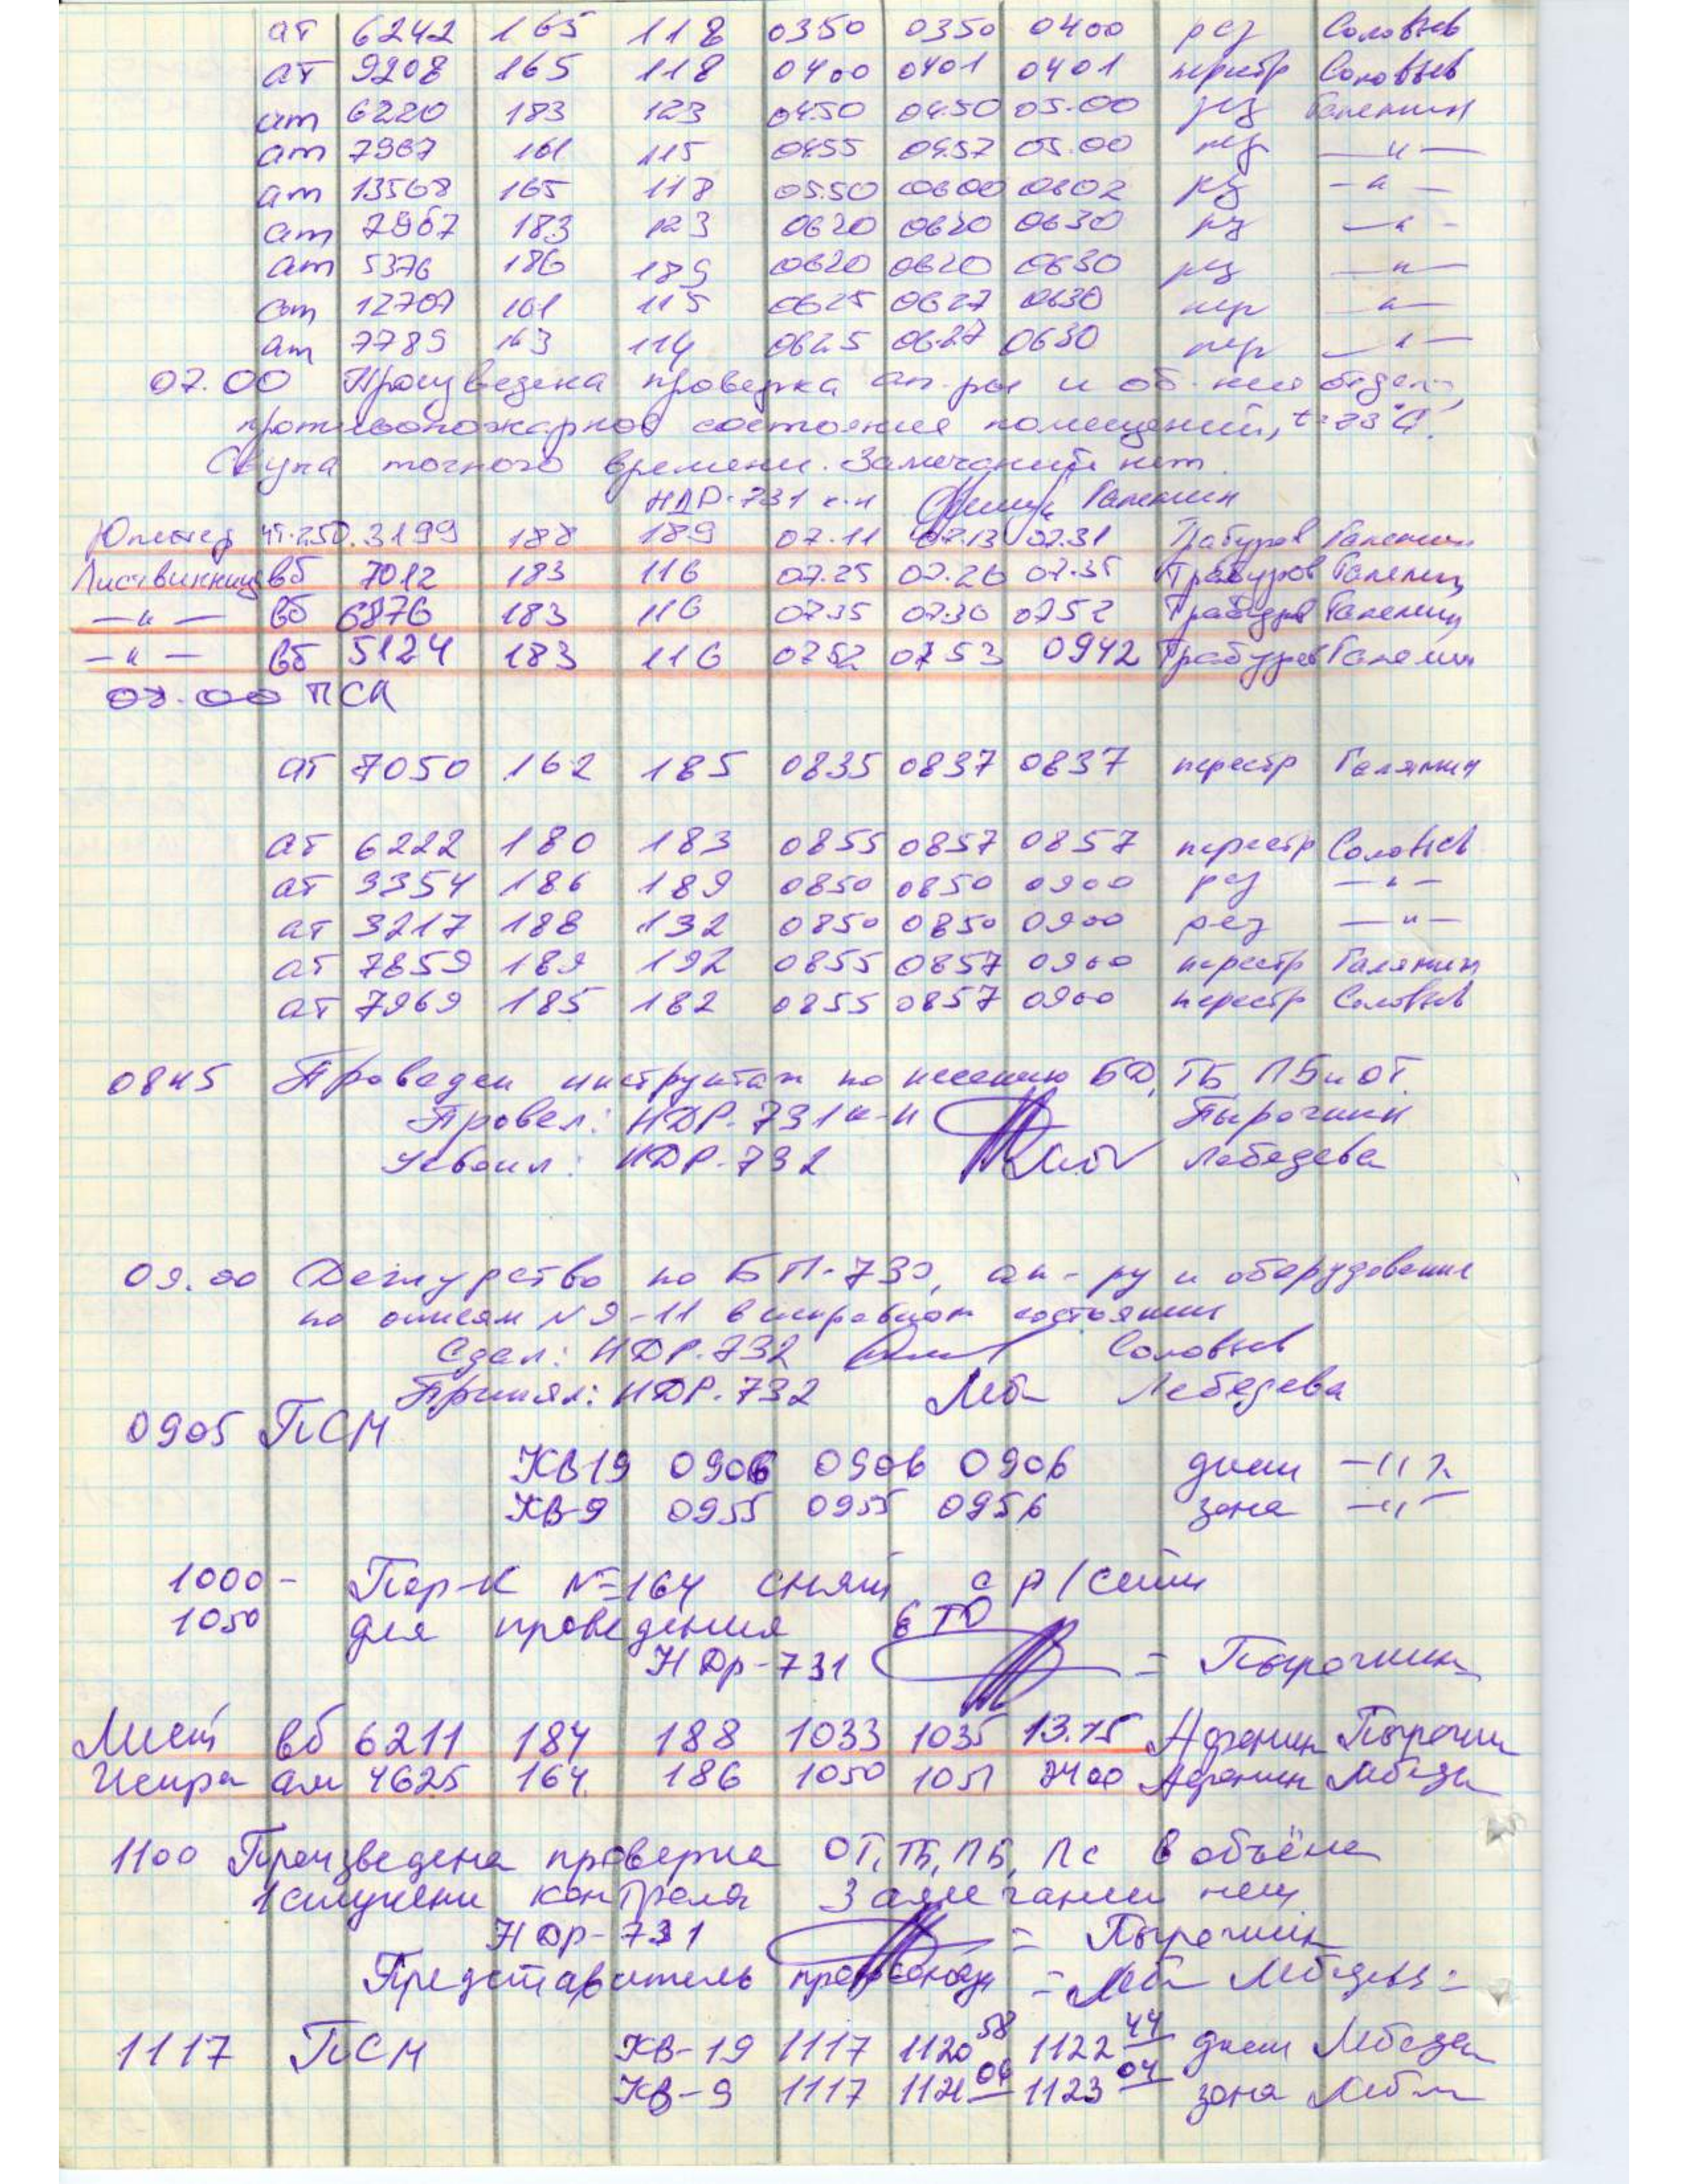 ат 6242 165 118 0350 0350 0400 рез Соловьев
ат 9208 165 118 0400 0401 0401 перестр Соловьев
ат 6220 183 123 0450 04.50 05.00 рез Галенин
ат 7967 161 115 0455 04.57 05.00 пер —"—
ат 13568 165 118 05.50 0600 0602 рез —"—
ат 7967 183 123 0620 0620 0630 рез —"—
ат 5376 186 189 0620 0620 0630 рез —"—
ат 12707 161 115 0625 0627 0630 пер —"—
ат 7789 163 114 0625 0627 0630 пер —"—
07.00 Произведена проверка ап-ры и об-ния отдел.,
противопожарное состояние помещений,
точного времени. Замечаний нет.
НДР-731 к-н Галенин
чт.250. 3199 188 189 07.11 07.13 07.31 Трабуров Галенин
Лиственница вб 7012 183 116 07.25 07.26 07.35 Трабуров Галенин
—"— вб 6876 183 116 07.35 07.36 0752 Трабуров Галенин
—"— вб 5124 183 116 0752 0753 0942 Трабуров Галенин
ПСЛ
ат 7050 162 185 0835 0837 0837 перестр Галянин
ат 6222 180 183 0855 0857 0857 перестр Соловьев
ат 3354 186 189 0850 0850 0900 рез —"—
ат 3217 188 132 0850 0850 0900 рез —"—
ат 7859 189 192 0855 0857 0900 перестр Галянин
ат 7969 185 182 0855 0857 0900 перестр Соловьев
0845 Проведен инструктаж по несению БД, ТБ ПБ и ОТ.
Провел: НДР-731 к-н Пырочкин
Усвоил: НДР-732 Лебедева
09.00 Дежурство по БП-730, ап-ру и оборудование
по описям №9-11 в исправном состоянии
Сдал: НДР-732 Соловьев
Принял: НДР-732 Леб Лебедева
0905 ПСМ
КВ19 0906 0906 0906 дкм —"—
КВ-9 0955 0955 0956 зона —"—
1000 - Пер-к №164 снят с р/сети
1050 для проведения ЕТО
НДр-731 = Пырочкин
Лист вб 6211 184 188 1033 1035 13.15 Пырочкин
Искра ам 4625 164 186 1050 1051 2400 Лебеде
1100 Произведена проверка ОТ, ТБ, ПБ, Пс в объёме
1 ступени контроля Замечаний нет
НДр-731 = Пырочкин
Представитель профсоюза = Леб Лебедева =
1117 ПСМ КВ-19 1117 1120 58 1122 44 дкм Лебеде
КВ-9 1117 1121 06 1123 04 зона Леб